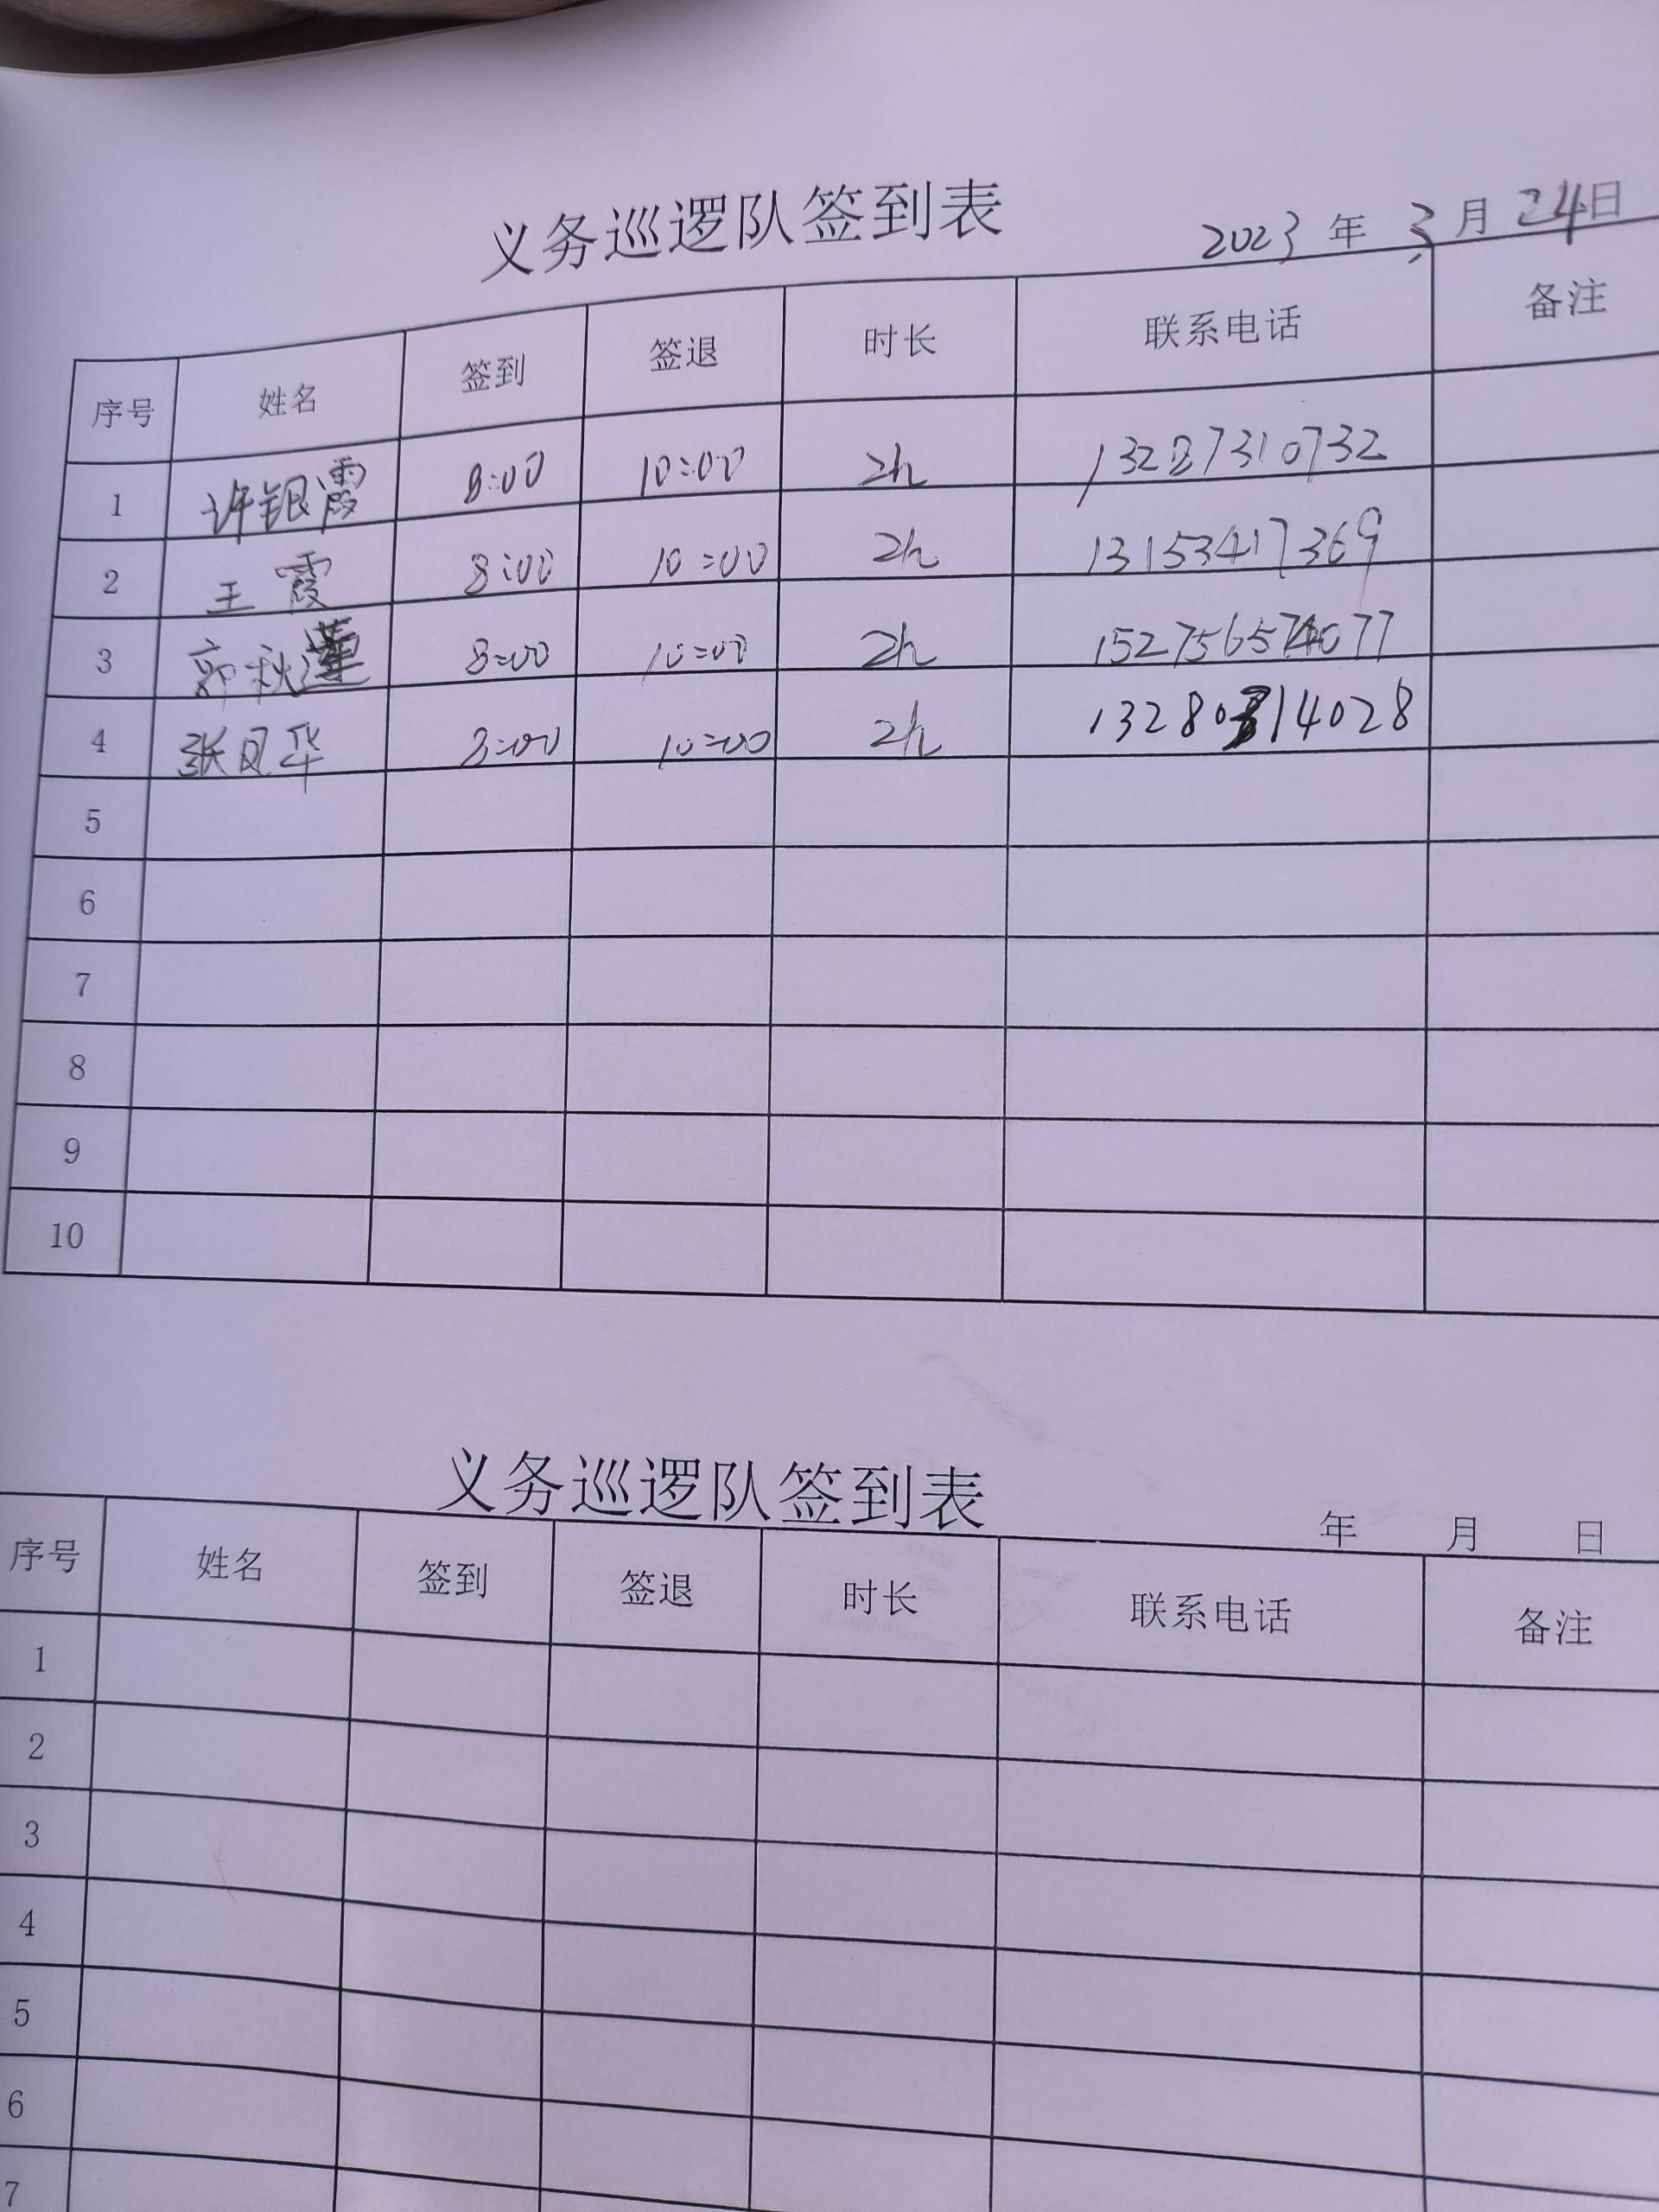 义务巡逻队签到表
2023 年 3 月 24 日
序号 姓名 签到 签退 时长 联系电话 备注
1 许银霞 8:00 10:00 2h 13287310732
2 王霞 8:00 10:00 2h 13153417369
3 郭秋 8:00 10:00 2h
4 张凤华 8:00 10:00 2h
5
6
7
8
9
10
义务巡逻队签到表
年 月 日
序号 姓名 签到 签退 时长 联系电话 备注
1
2
3
4
5
6
7